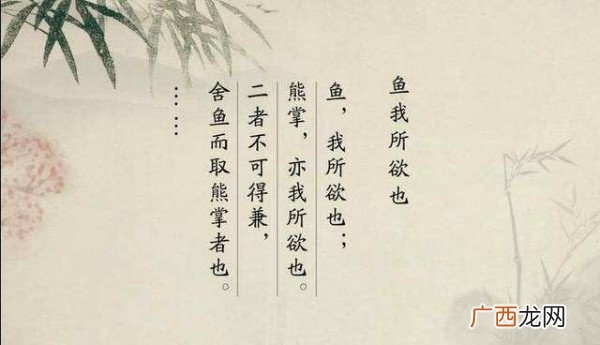 鱼我所欲也
鱼，我所欲也；
熊掌，亦我所欲也。
二者不可得兼，
舍鱼而取熊掌者也。
……
广西龙网